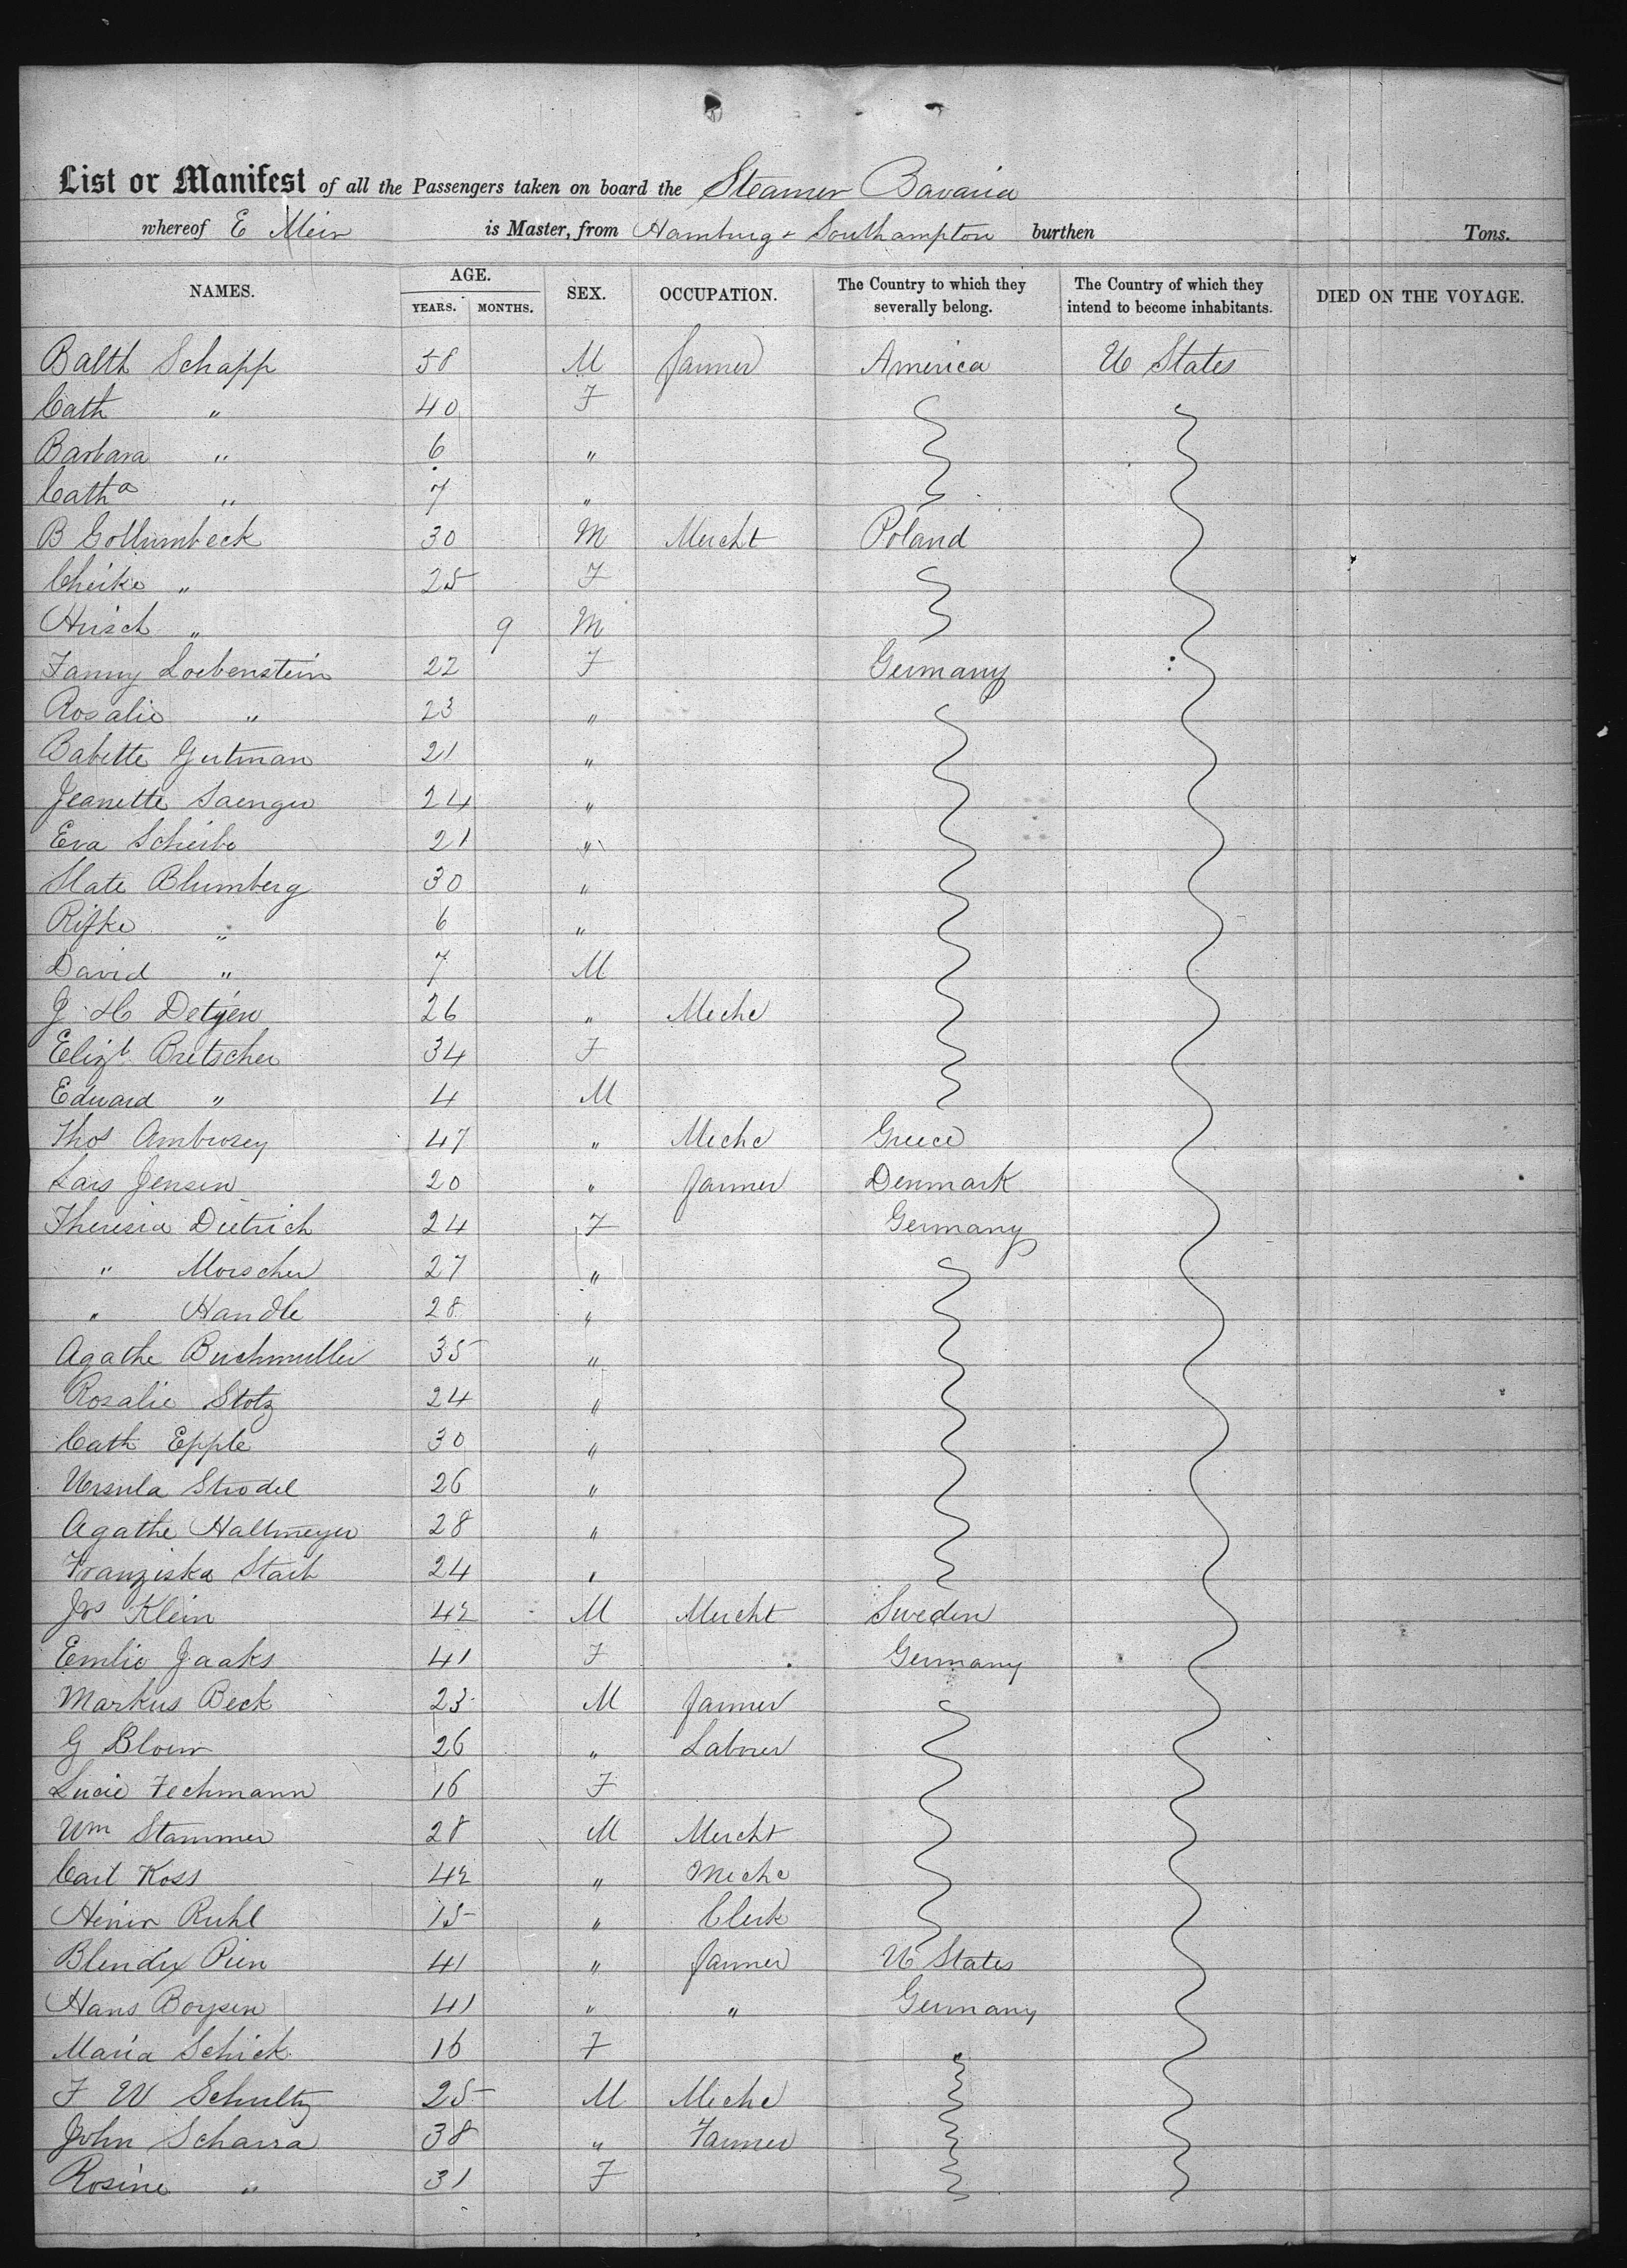 List or Manifest of all the Passengers taken on board the Steamer Bavaria
whereof E Meier is Master, from Hamburg & Southampton burthen Tons.
NAMES. AGE. YEARS. MONTHS. SEX. OCCUPATION. The Country to which they severally belong. The Country of which they intend to become inhabitants. DIED ON THE VOYAGE.
Balth Schapp 58 M farmer America U States
Cath " 40 F
Barbara " 6 "
Catha " 7 "
B Gollumbeck 30 M Mercht Poland
Cheike " 25 F
Hirsch " 9 M
Fanny Loebenstein 22 F Germany
Rosalie " 23 "
Babette Gutman 21 "
Jeanette Saenger 24 "
Eva Scheibe 21 "
Slate Blumberg 30 "
Rifke " 6 "
David " 7 M
J H Detjen 26 " Mechc
Elizt Bretscher 34 F
Eduard " 4 M
Thos Ambrosey 47 " Mechc Greece
Lars Jensen 20 " farmer Denmark
Theresia Dietrich 24 F Germany
" Morscher 27 "
" Handle 28 "
Agathe Buchmuller 35 "
Rosalie Stotz 24 "
Cath Epple 30 "
Ursula Strodel 26 "
Agathe Hallmeyer 28 "
Franziska Stach 24 "
Jos Klein 42 M Mercht Sweden
Emilie Jaaks 41 F Germany
Markus Beck 23 M farmer
G Bloem 26 " Laborer
Lucie Techmann 16 F
Wm Stammer 28 M Mercht
Carl Koss 42 " Mechc
Heinr Ruhl 15 " Clerk
Blendix Pien 41 " farmer U States
Hans Boysen 41 " " Germany
Maria Schick 16 F
F W Schultz 25 M Mechc
John Scharra 38 " Farmer
Rosine " 31 F